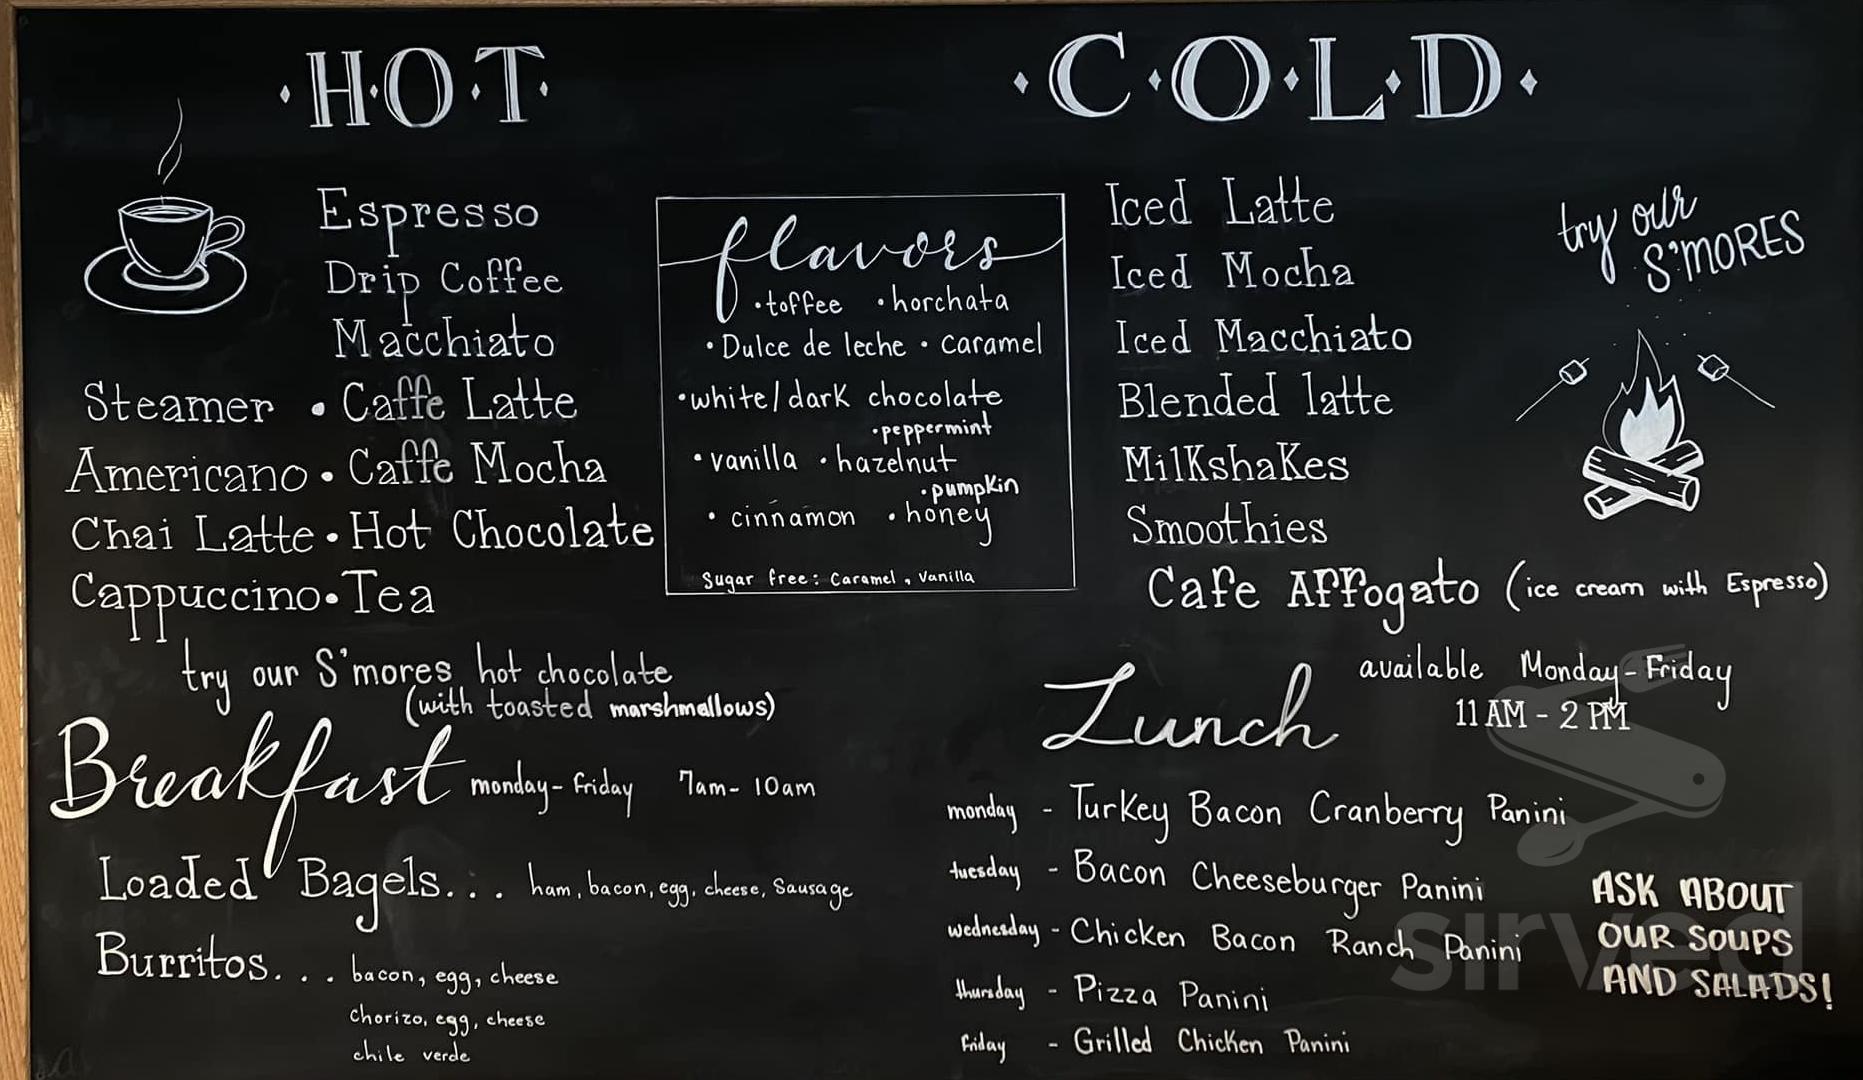 ·H·O·T·
Espresso
Drip Coffee
Macchiato
Steamer • Caffe Latte
Americano • Caffe Mocha
Chai Latte • Hot Chocolate
Cappuccino • Tea
try our S'mores hot chocolate
(with toasted marshmallows)
flavors
•toffee •horchata
•Dulce de leche •caramel
•white/dark chocolate
•peppermint
•vanilla •hazelnut
•pumpkin
•cinnamon •honey
Sugar free: Caramel, Vanilla
·C·O·L·D·
Iced Latte
Iced Mocha
Iced Macchiato
Blended latte
Milkshakes
Smoothies
Cafe Affogato (ice cream with Espresso)
try our
S'MORES
Breakfast monday-Friday 7am-10am
Loaded Bagels... ham, bacon, egg, cheese, Sausage
Burritos... bacon, egg, cheese
Chorizo, egg, cheese
chile verde
Lunch available Monday-Friday
11AM - 2PM
monday - Turkey Bacon Cranberry Panini
tuesday - Bacon Cheeseburger Panini
wednesday - Chicken Bacon Ranch Panini
thursday - Pizza Panini
Friday - Grilled Chicken Panini
ASK ABOUT
OUR SOUPS
AND SALADS!
sirved